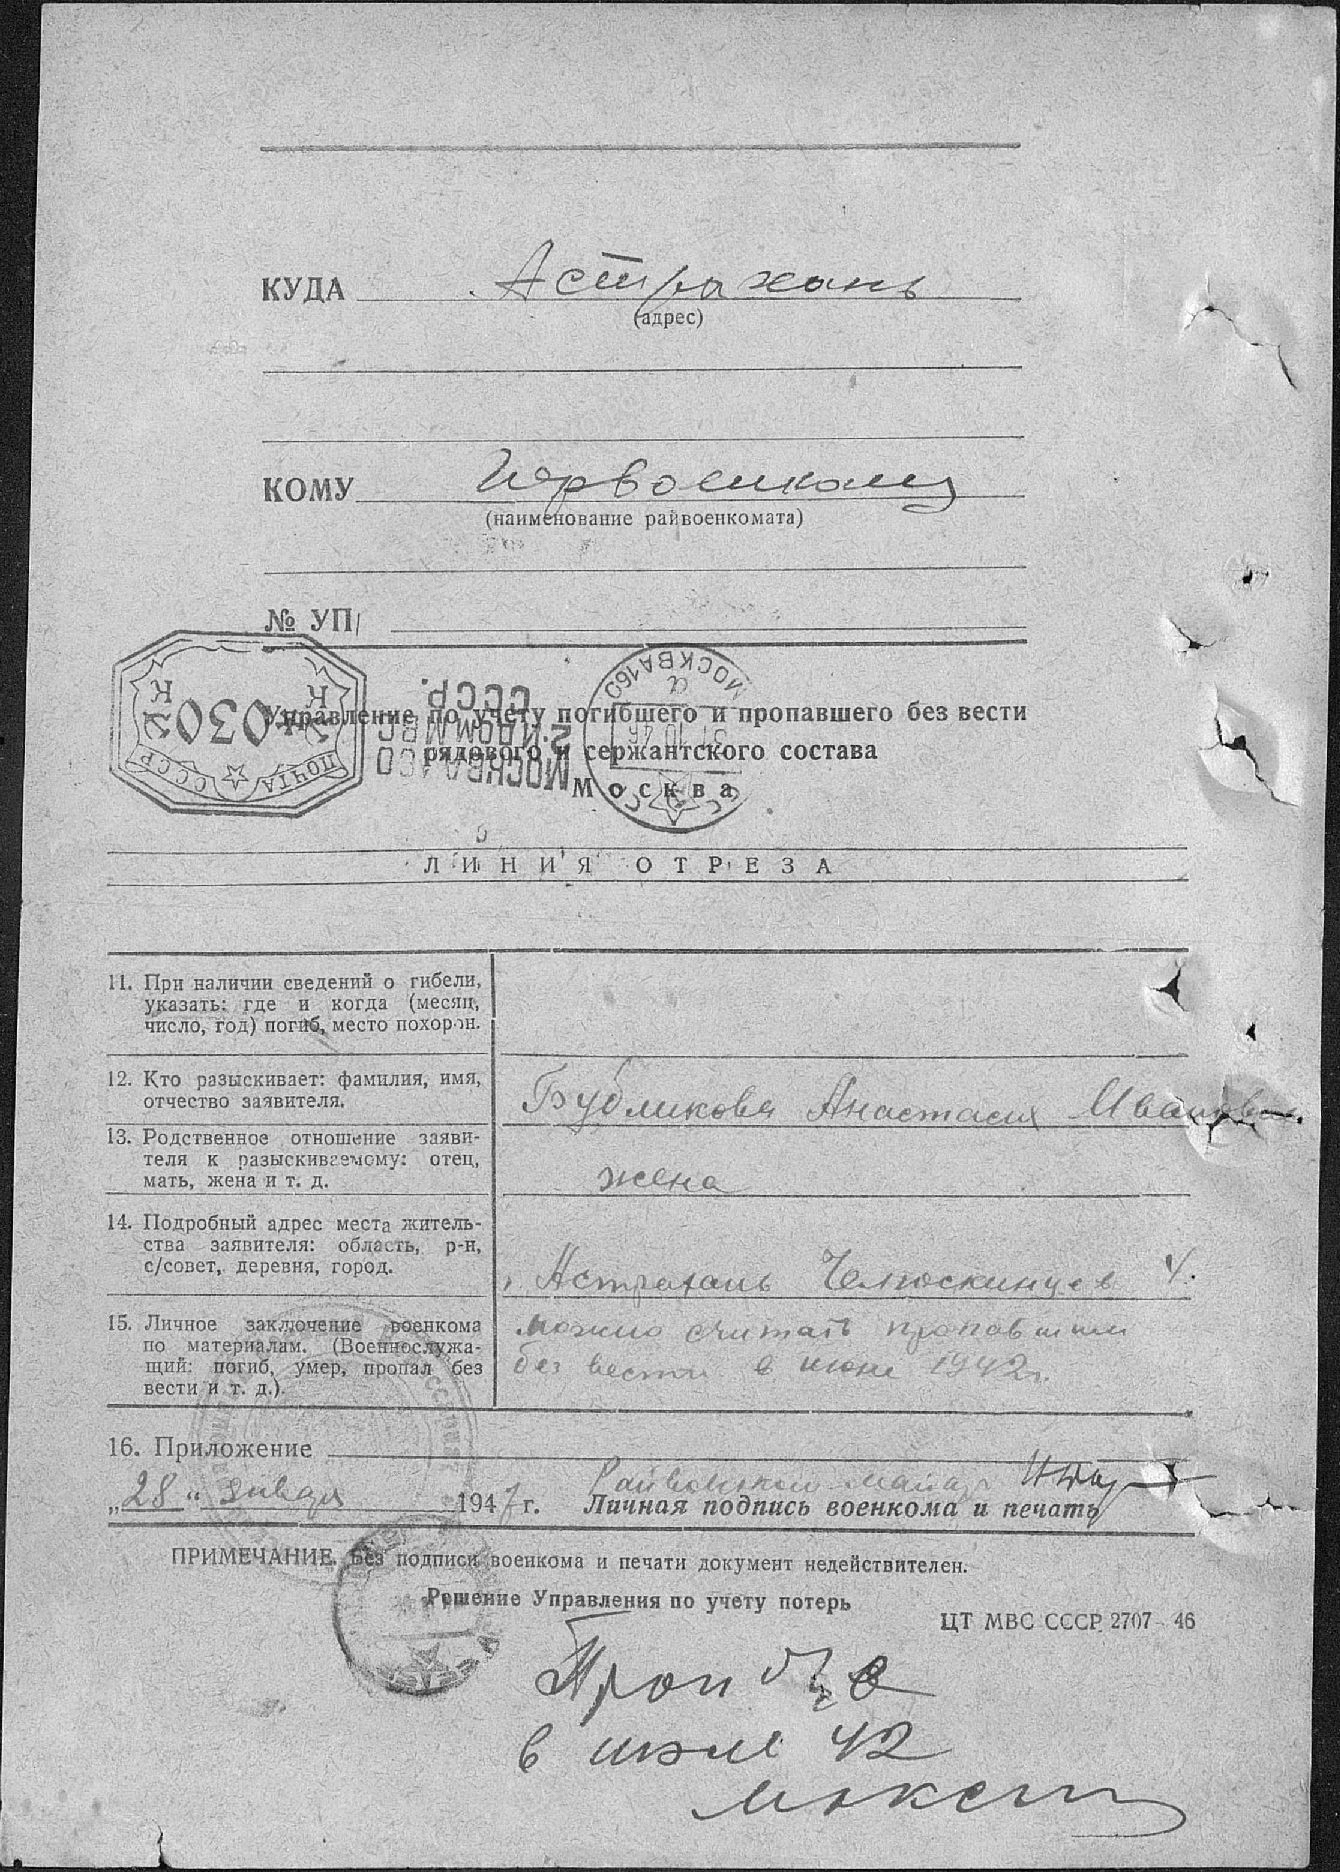 КУДА Астрахань
(адрес)
КОМУ Горвоенкому
(наименование райвоенкомата)
№ УП/
Управление по учету погибшего и пропавшего без вести
рядового и сержантского состава
Москва
ПОЧТА СССР
030
К К
МОСКВА 160
СССР.
МОСКВА 160
31 10 46
СССР
ЛИНИЯ ОТРЕЗА
11. При наличии сведений о гибели,
указать: где и когда (месяц,
число, год) погиб, место похорон.
12. Кто разыскивает: фамилия, имя,
отчество заявителя.
Бубликова Анастасия Ивановна
13. Родственное отношение заяви-
теля к разыскиваемому: отец,
мать, жена и т. д.
жена
14. Подробный адрес места житель-
ства заявителя: область, р-н,
с/совет, деревня, город.
Астрахань Челюскинцев 4.
15. Личное заключение военкома
по материалам. (Военнослужа-
щий: погиб, умер, пропал без
вести и т. д.).
можно считать пропавшим
без вести в июне 1942 г.
16. Приложение
Райвоенком майор
„28" января 1947 г. Личная подпись военкома и печать
ПРИМЕЧАНИЕ. Без подписи военкома и печати документ недействителен.
Решение Управления по учету потерь
ЦТ МВС СССР 2707—46
Проп б/в
в июле 42